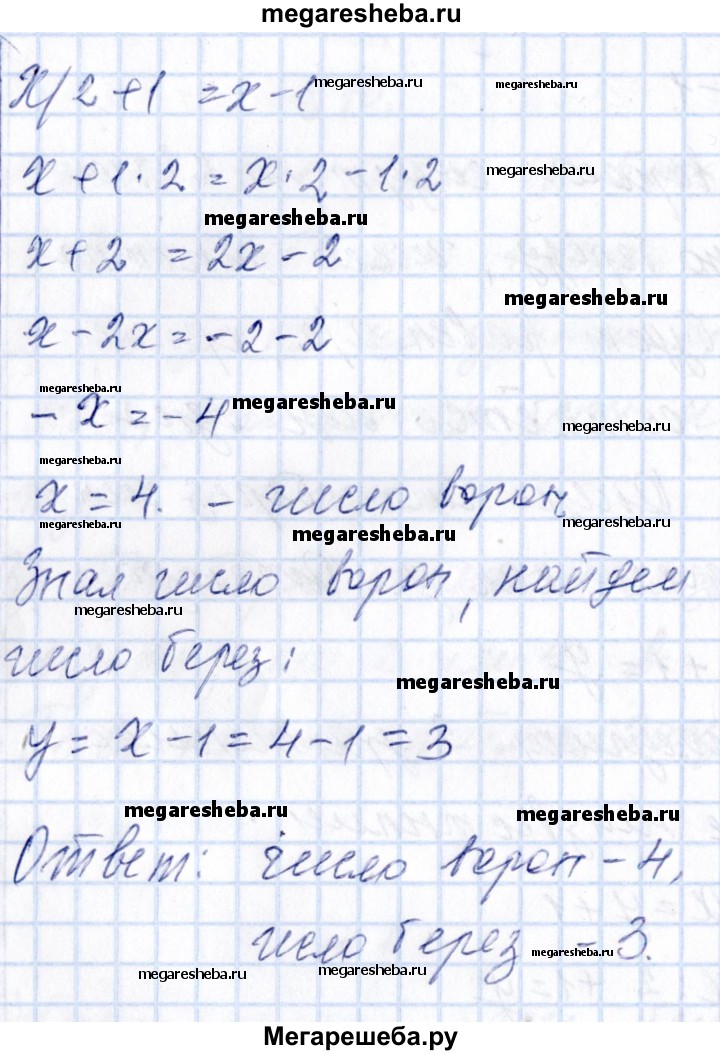 megaresheba.ru
x/2+1 = x-1 megaresheba.ru
x+1·2 = x·2-1·2 megaresheba.ru
megaresheba.ru
x+2 = 2x-2
megaresheba.ru
x-2x = -2-2
megaresheba.ru
-x = -4 megaresheba.ru
megaresheba.ru
megaresheba.ru
x = 4. - число ворон,
megaresheba.ru megaresheba.ru
megaresheba.ru
Зная число ворон, найдем
megaresheba.ru
число берез:
megaresheba.ru
y = x-1 = 4-1 = 3
megaresheba.ru megaresheba.ru
Ответ: число ворон - 4,
число берез - 3.
megaresheba.ru megaresheba.ru megaresheba.ru
Мегарешеба.ру